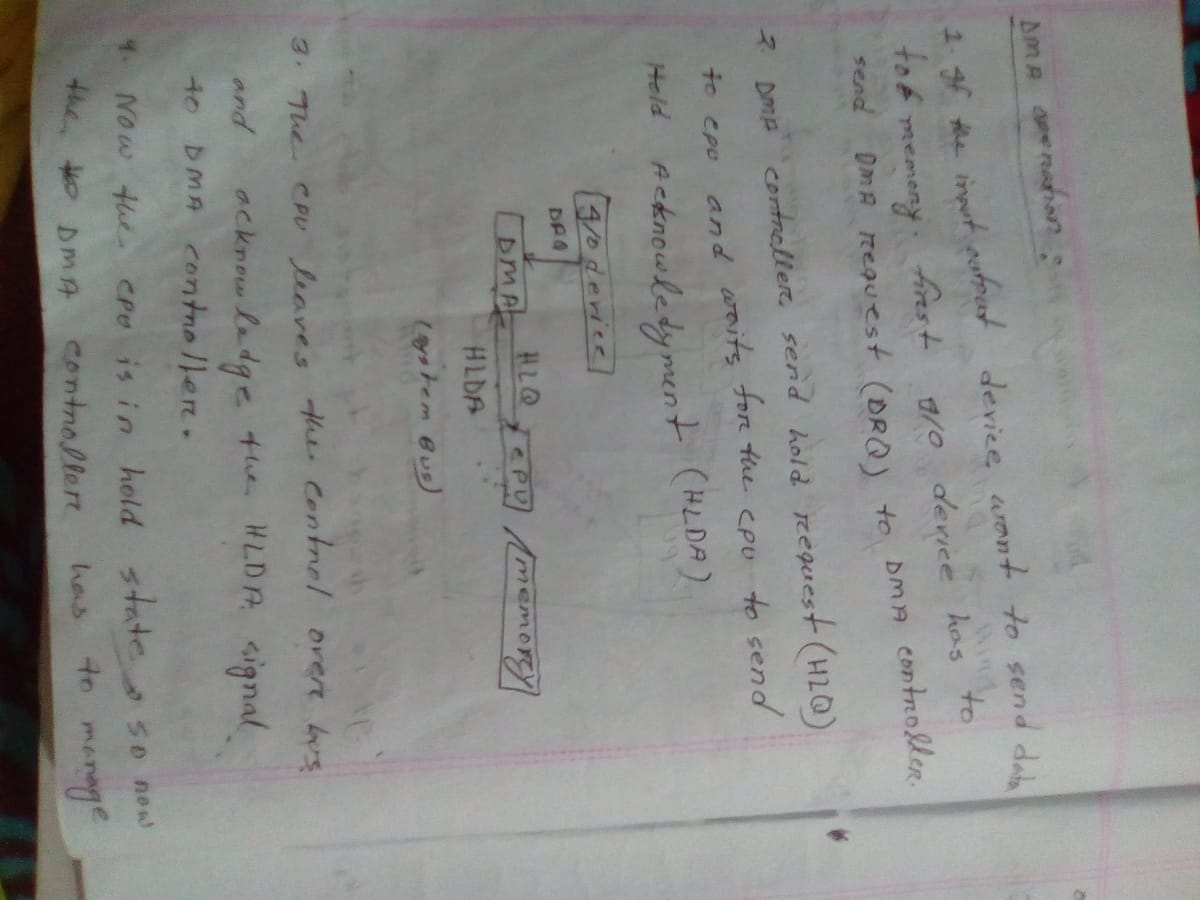 DMA operation :
1. If the input output device want to send data
to memory. first I/O device has to
send DMA request (DRQ) to DMA controller.
2. DMA controller send hold request (HLQ)
to CPU and waits for the CPU to send
Hold Acknowledyment (HLDA)
I/O device
DRQ
DMA HLQ CPU memory
HLDA
(system Bus)
3. The CPU leaves the control over bus
and acknowledge the HLDA signal
to DMA controller.
4. Now the CPU is in hold state, so now
the DMA controller has to manage